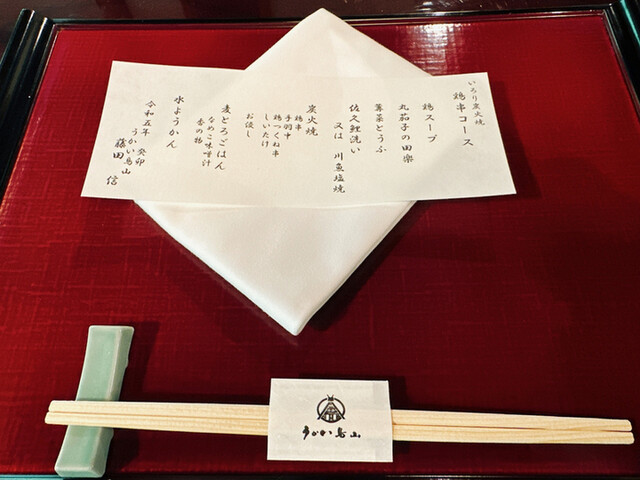 いろり炭火焼
鶏串コース
鶏スープ
丸茄子の田楽
蓴菜とうふ
佐久鯉洗い
又は 川魚塩焼
炭火焼
鶏串
手羽中
鶏つくね串
しいたけ
お浸し
麦とろごはん
なめこ味噌汁
香の物
水ようかん
令和五年 癸卯
うかい鳥山
藤田 信
うかい鳥山